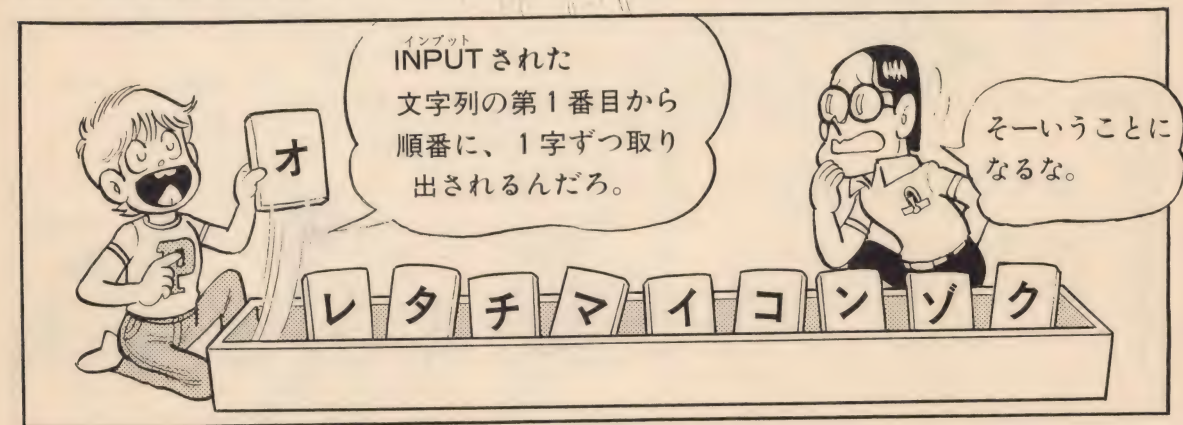 インプット
INPUTされた
文字列の第1番目から
順番に、1字ずつ取り
出されるんだろ。
そーいうことに
なるな。
オ
レタチマイコンゾク